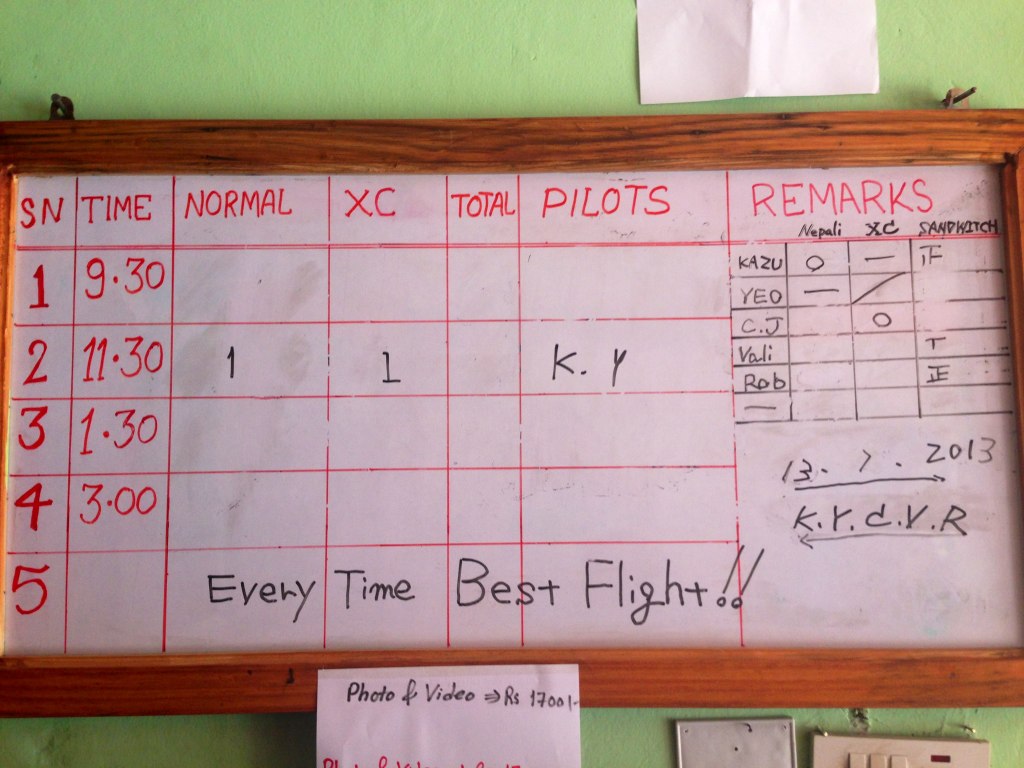 SN TIME NORMAL XC TOTAL PILOTS REMARKS
Nepali XC SANDWITCH
1 9.30
KAZU O — 正
YEO —
C.J O
2 11.30 1 1 K. Y
Vali T
Rab 正
—
3 1.30
13. 7. 2013
4 3.00
K.Y.C.V.R
5 Every Time Best Flight!!
Photo & Video ⇒ Rs 1700/-